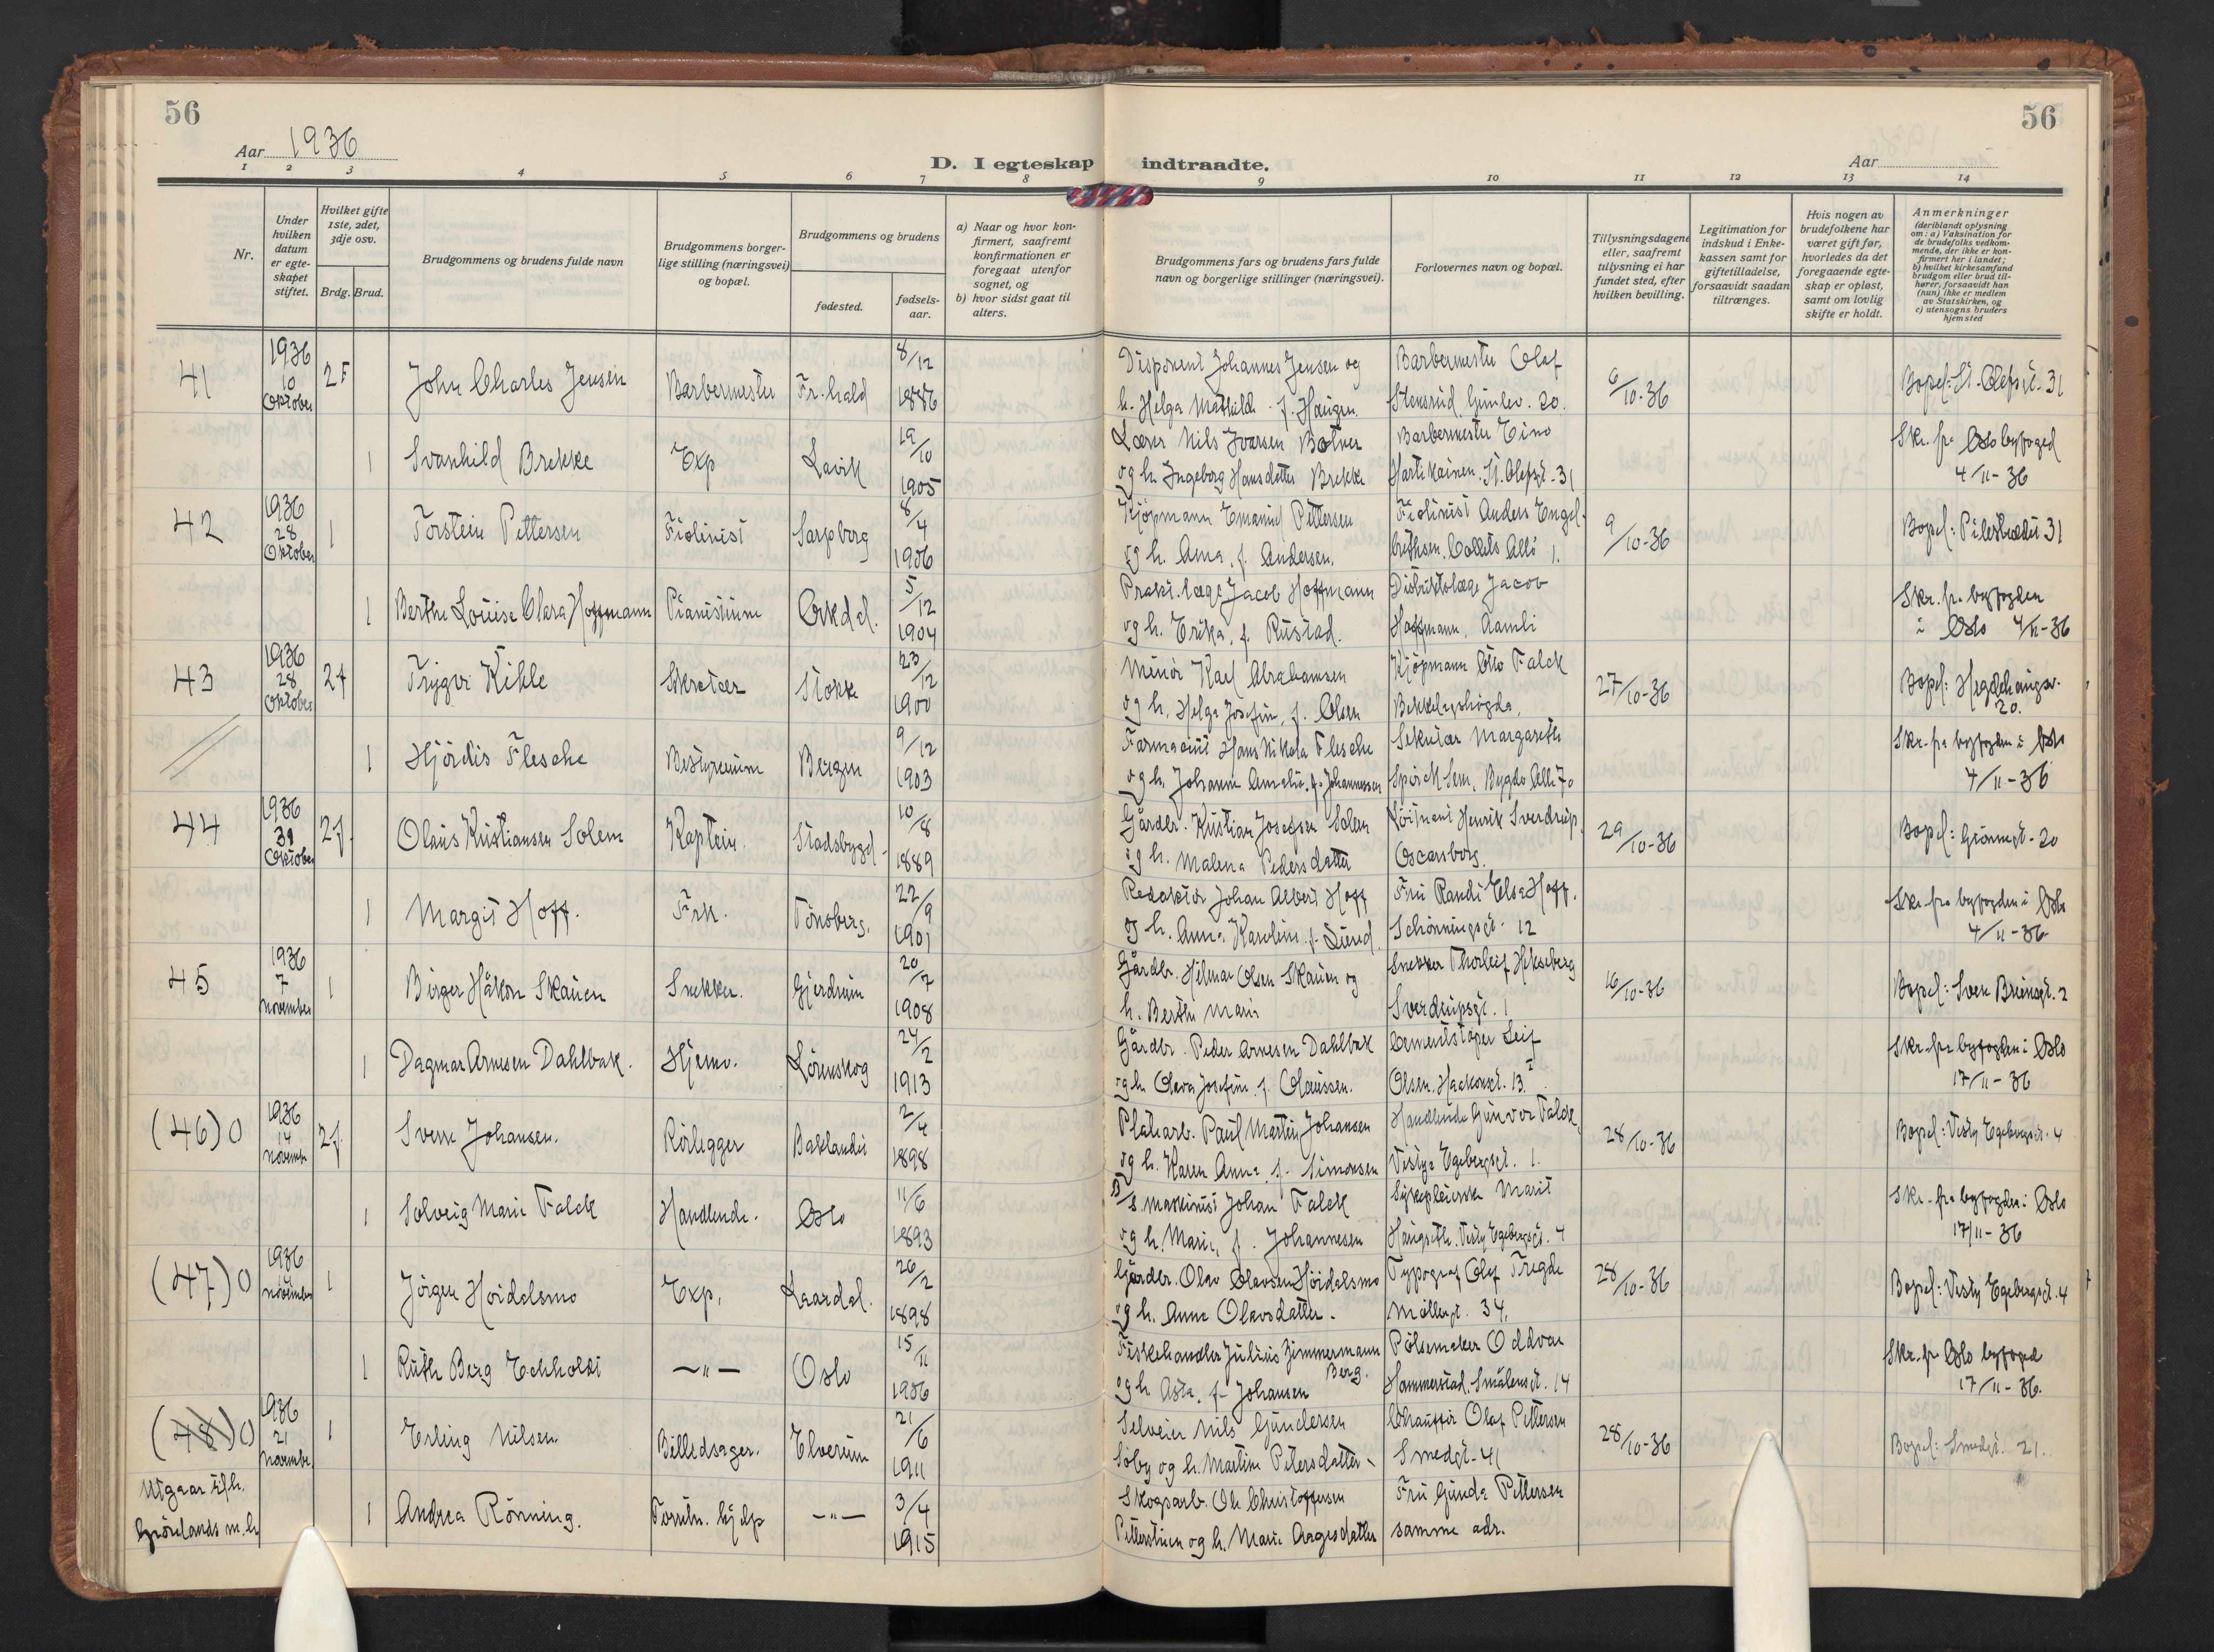 56
56
Aar 1936
D. I egteskap indtraadte.
Aar
1 2 3 4 5 6 7 8 9 10 11 12 13 14
Nr.
Under hvilken datum er egteskapet stiftet.
Hvilket gifte 1ste, 2det, 3dje osv.
Brdg. Brud.
Brudgommens og brudens fulde navn
Brudgommens borgerlige stilling (næringsvei) og bopæl.
Brudgommens og brudens
fødested.
fødselsaar.
a) Naar og hvor konfirmert, saafremt konfirmationen er foregaat utenfor sognet, og
b) hvor sidst gaat til alters.
Brudgommens fars og brudens fars fulde navn og borgerlige stillinger (næringsvei).
Forlovernes navn og bopæl.
Tillysningsdagene eller, saafremt tillysning ei har fundet sted, efter hvilken bevilling.
Legitimation for indskud i Enkekassen samt for giftetilladelse, forsaavidt saadan tiltrænges.
Hvis nogen av brudefolkene har været gift før, hvorledes da det foregaaende egteskap er opløst, samt om lovlig skifte er holdt.
Anmerkninger
(deriblandt oplysning om: a) Vaksination for de brudefolks vedkommende, der ikke er konfirmert her i landet;
b) hvilket kirkesamfund brudgom eller brud tilhører, forsaavidt han (hun) ikke er medlem av Statskirken, og
c) utensogns bruders hjemsted
41 1936 10 Oktober 2 John Charles Jensen Barbermester Fr.hald 8/12 1886
Disponent Johannes Jensen og h. Helga Mathilde f. Haugen.
Barbermester Olaf Stensrud. Gimlev. 20.
6/10-36
Bopel: St. Olafsgt. 31
1 Svanhild Brekke Exp Lavik 19/10 1905
Lærer Nils Iversen Botner og h. Ingeborg Hansdatter Brekke
Barbermester Eino Hartikainen. St. Olafsgt. 31
Skr. fra Oslo byfoged 4/11-36
42 1936 28 Oktober 1 Torstein Pettersen Fiolinist Sarpborg 8/4 1906
Kjöpmann Emanuel Pettersen og h. Anna, f. Andersen.
Fiolinist Anders Engelbrethsen. Colletts Allé 1.
9/10-36
Bopel: Pilestredet 31
1 Berthe Louise Clara Hoffmann Pianistinne Orkdal. 5/12 1904
Prakt. læge Jacob Hoffmann og h. Erika, f. Rustad.
Distriktslæge Jacob Hoffmann, Aamli
Skr. fra byfogden i Oslo 4/11-36
43 1936 28 Oktober 2f Trygve Kihle Sekretær Stokke 23/12 1900
Minör Karl Abrahamsen og h. Helga Josefine, f. Olsen
Kjöpmann Otto Falck Bekkelagshögda.
27/10-36
Bopel: Hegdehaugsv. 20.
1 Hjördis Flesche Bestyrerinne Bergen 9/12 1903
Farmaceut Hans Nikolai Flesche og h. Johanne Amalie f. Johannessen
Sekretær Margareth Spörck Sem, Bygdö Allé 70
Skr. fra byfogden i Oslo 4/11-36
44 1936 Oktober 2f. Olaus Kristiansen Solem Kaptein. Stadsbygd 10/8 1889
Gårdbr. Kristian Josefsen Solem og h. Malena Pedersdatter
Löitnant Henrik Sverdrup, Oscarsborg.
29/10-36
Bopel: Grönnegt. 20
1 Margit Hoff. Frk. Tönsberg. 22/9 1901
Redaktör Johan Albert Hoff og h. Anna Karoline f. Lund.
Fru Randi Elsa Hoff. Schönningsgt. 12
Skr. fra byfogden i Oslo 4/11-36
45 1936 7 November 1 Birger Håkon Skauen Snekker. Gjerdrum 20/7 1908
Gårdbr. Hilmar Olsen Skauen og h. Berthe Marie
Snekker Thorleif Hekseberg Sverdrupsgt. 1
16/10-36
Bopel: Sven Bruunsgt. 2
1 Dagmar Arnesen Dahlbak. Hjemv. Lörenskog 24/2 1913
Gårdbr. Peder Arnesen Dahlbak og h. Oleva Josefine f. Olaussen.
Cementstöper Leif Olsen. Haakonsgt. 13.
Skr. fra byfogden i Oslo 17/11-36
(46) 0 1936 14 Novembr 2f. Sverre Johansen. Rörlegger Baklandet 2/4 1898
Platearb. Paul Martin Johansen og h. Karen Anna f. Simonsen
Handlende Gunvor Falck, Vestye Egebergsgt. 1.
28/10-36
Bopel: Vestye Egebergsgt. 4
1 Solveig Marie Falck Handlende. Oslo 11/6 1893
maskinist Johan Falck og h. Marie, f. Johannesen
Sykepleierske Marit Haugseth. Vesty Egebergsgt. 4
Skr. fra byfogden i Oslo 17/11-36
(47) 0 1936 November 1 Jörgen Höidalsmo Exp. Laardal. 26/2 1898
Gårdbr. Olav Olavsen Höidalsmo og h. Anne Olavsdatter.
Typograf Olaf Tregde Möllergt. 34.
28/10-36
Bopel: Vesty Egebergsgt. 4
1 Ruth Berg Echholdt —„— Oslo 15/11 1906
Fiskehandler Julius Zimmermann Berg. og h. Asta, f. Johansen
Pölsemaker Oddvar Hammerstad, Smålensgt. 14
Skr. fra Oslo byfoged 17/11-36.
(48) 0 1936 21 Novembr. 1 Erling Nilsen. Billedskjærer. Elverum 21/6 1911
Selveier Nils Gundersen Söby og h. Martine Petersdatter
Chaufför Olaf Pettersen Smedgt. 41
28/10-36
Bopel: Smedgt. 21.
Utgaar till. Grönlands m.h.
1 Andrea Rönning. Forretn. hjelp —„— 3/4 1915
Skogsarb. Ole Christoffersen Petterstuen og h. Marie Aagesdatter
Fru Gunda Pettersen samme adr.